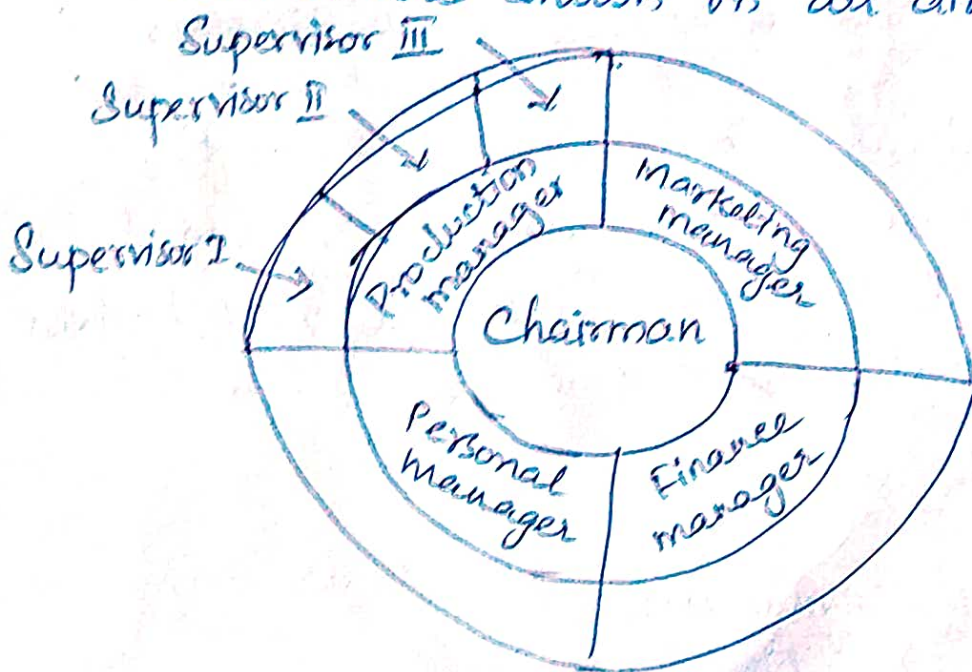 Supervisor III
Supervisor II
Supervisor I
Production
manager
Marketing
manager
Chairman
Personal
Manager
Finance
manager